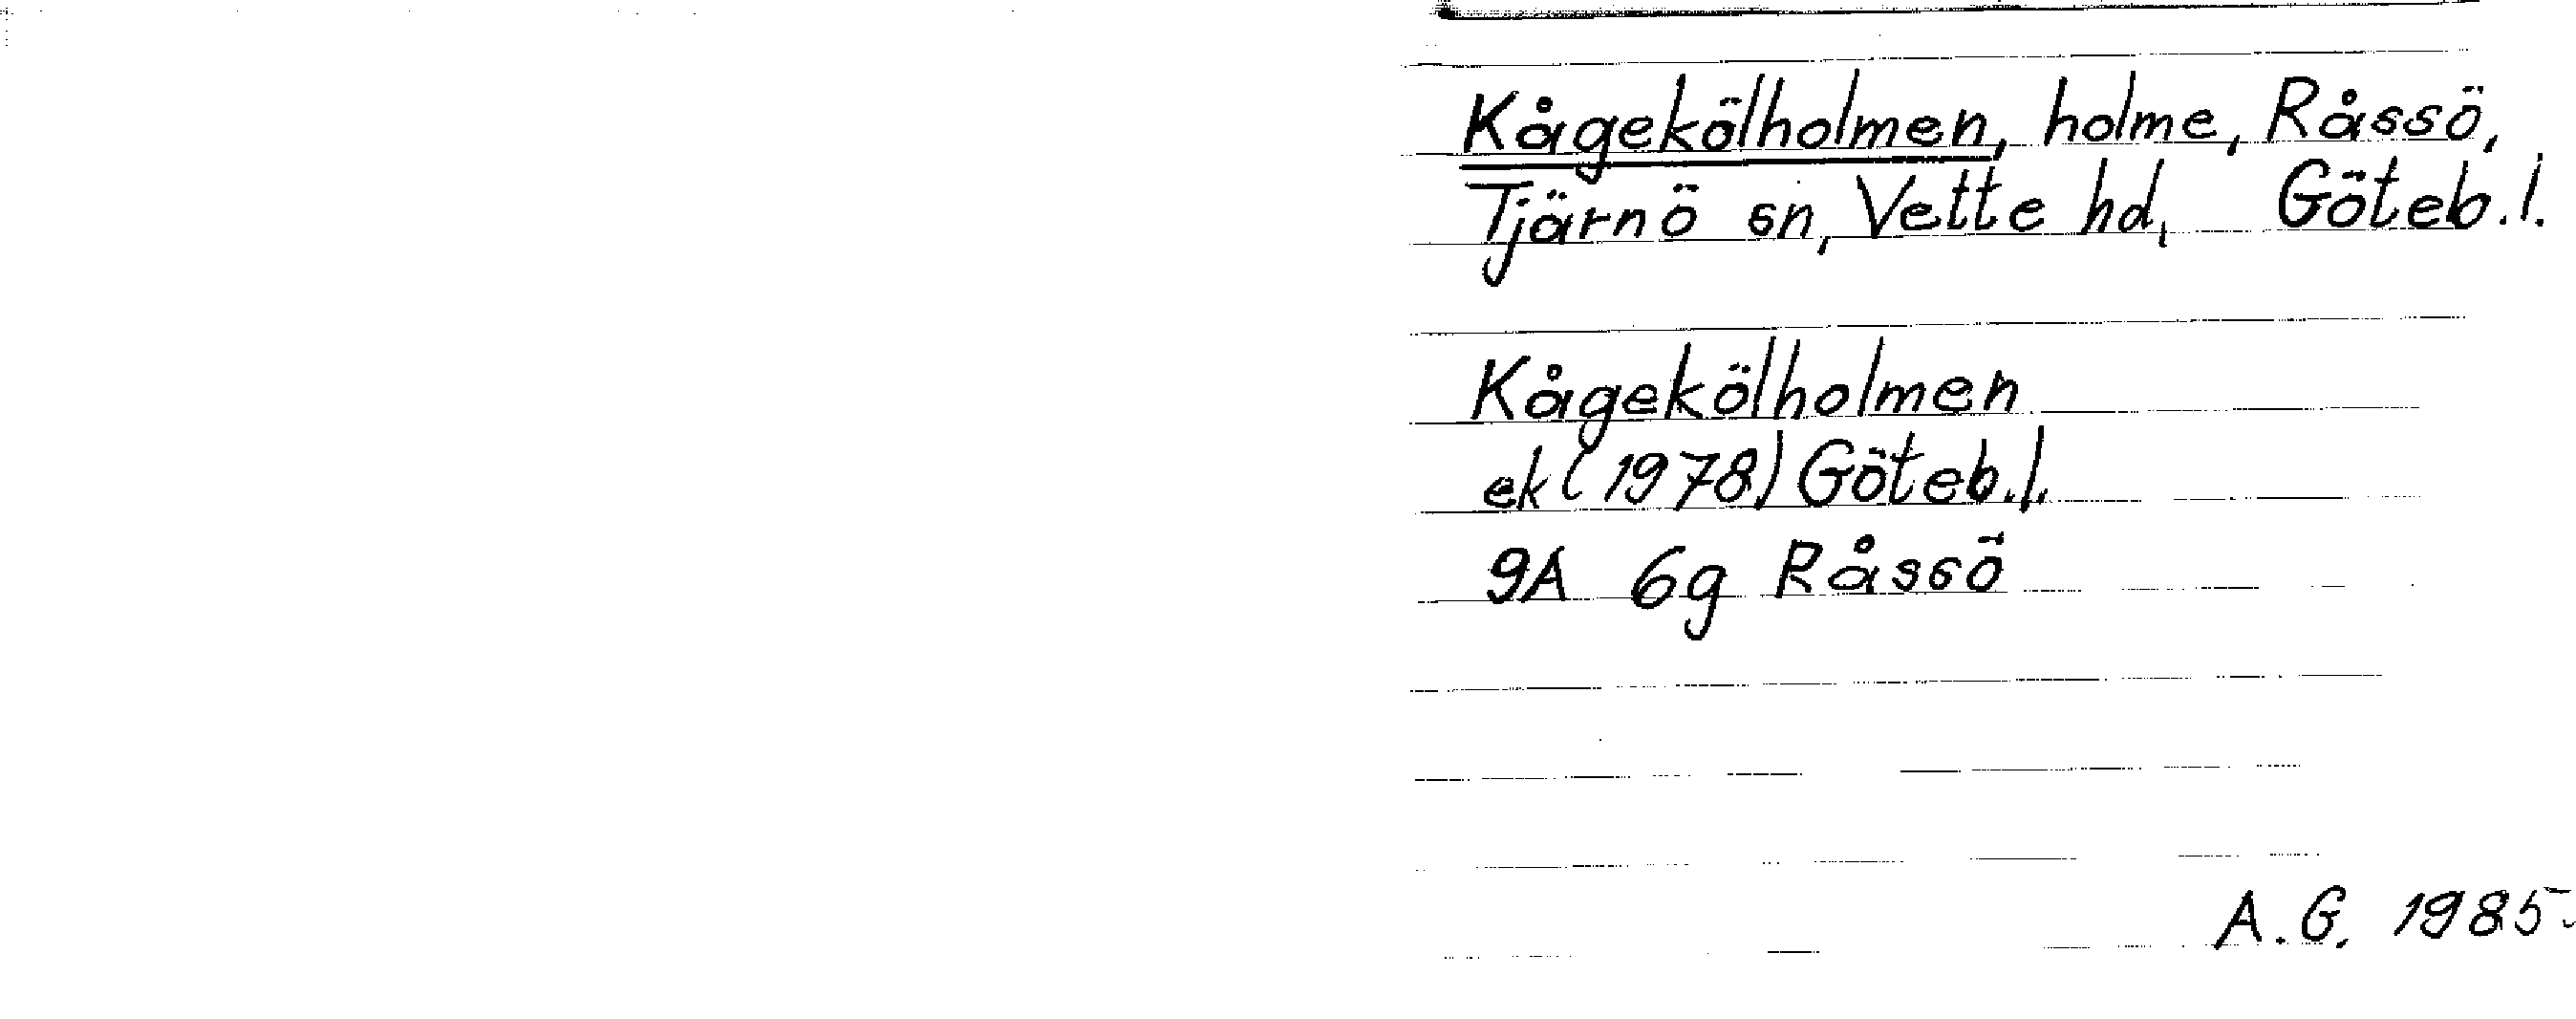 Kågekölholmen, holme, Råssö,
Tjärnö sn, Vette hd, Göteb.l.
Kågekölholmen
ek (1978) Göteb.l.
9A 6g Råssö
A.G. 1985